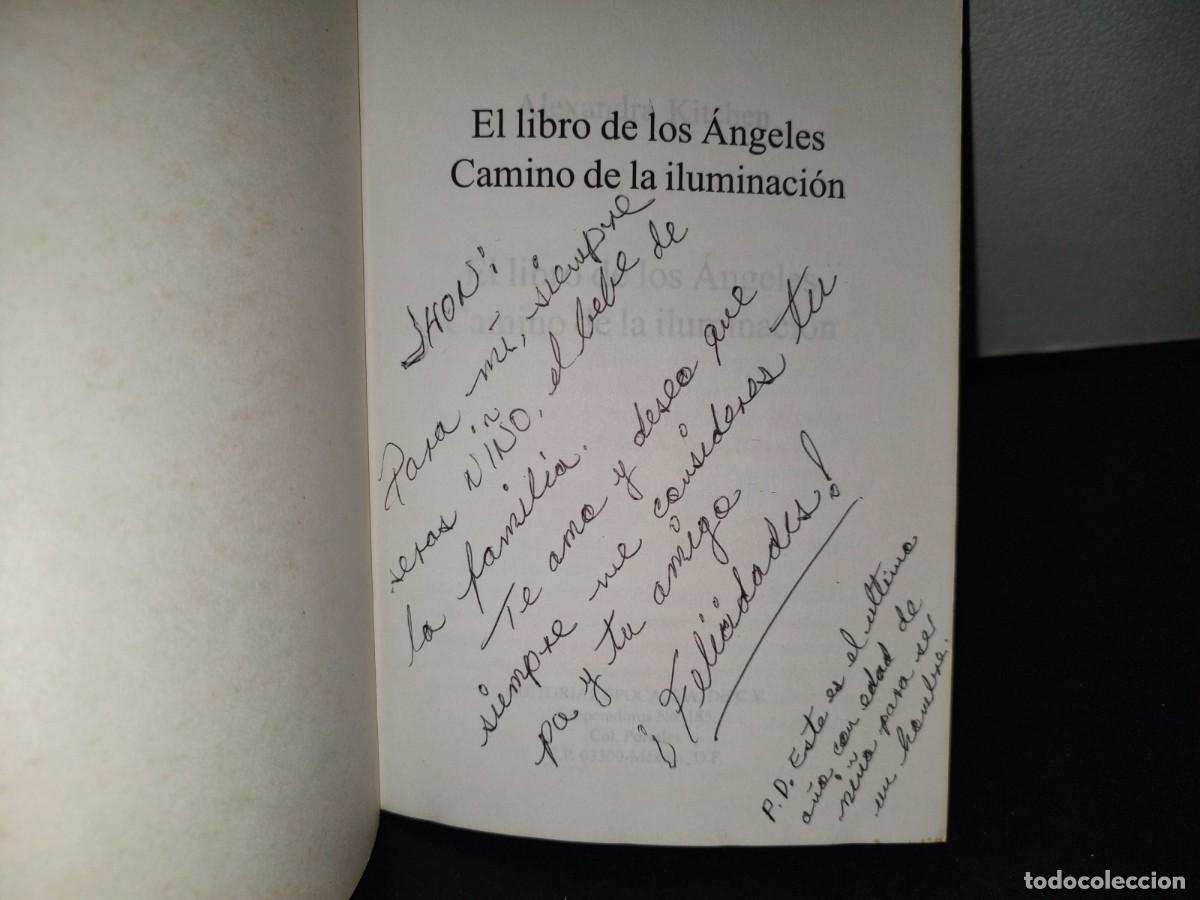 El libro de los Ángeles
Camino de la iluminación
JHON:
Para mi, siempre
seras NIÑO, el bebe de
la familia.
Te amo y deseo que
siempre me consideres tu
pa y tu amigo
¡Felicidades!
P.D. Este es el ultimo
año, con edad de
niño para ser
un hombre.
Alexandra Kitchen
El libro de los Ángeles
Camino de la iluminación
C.P. 03309-México, D.F.
todocoleccion